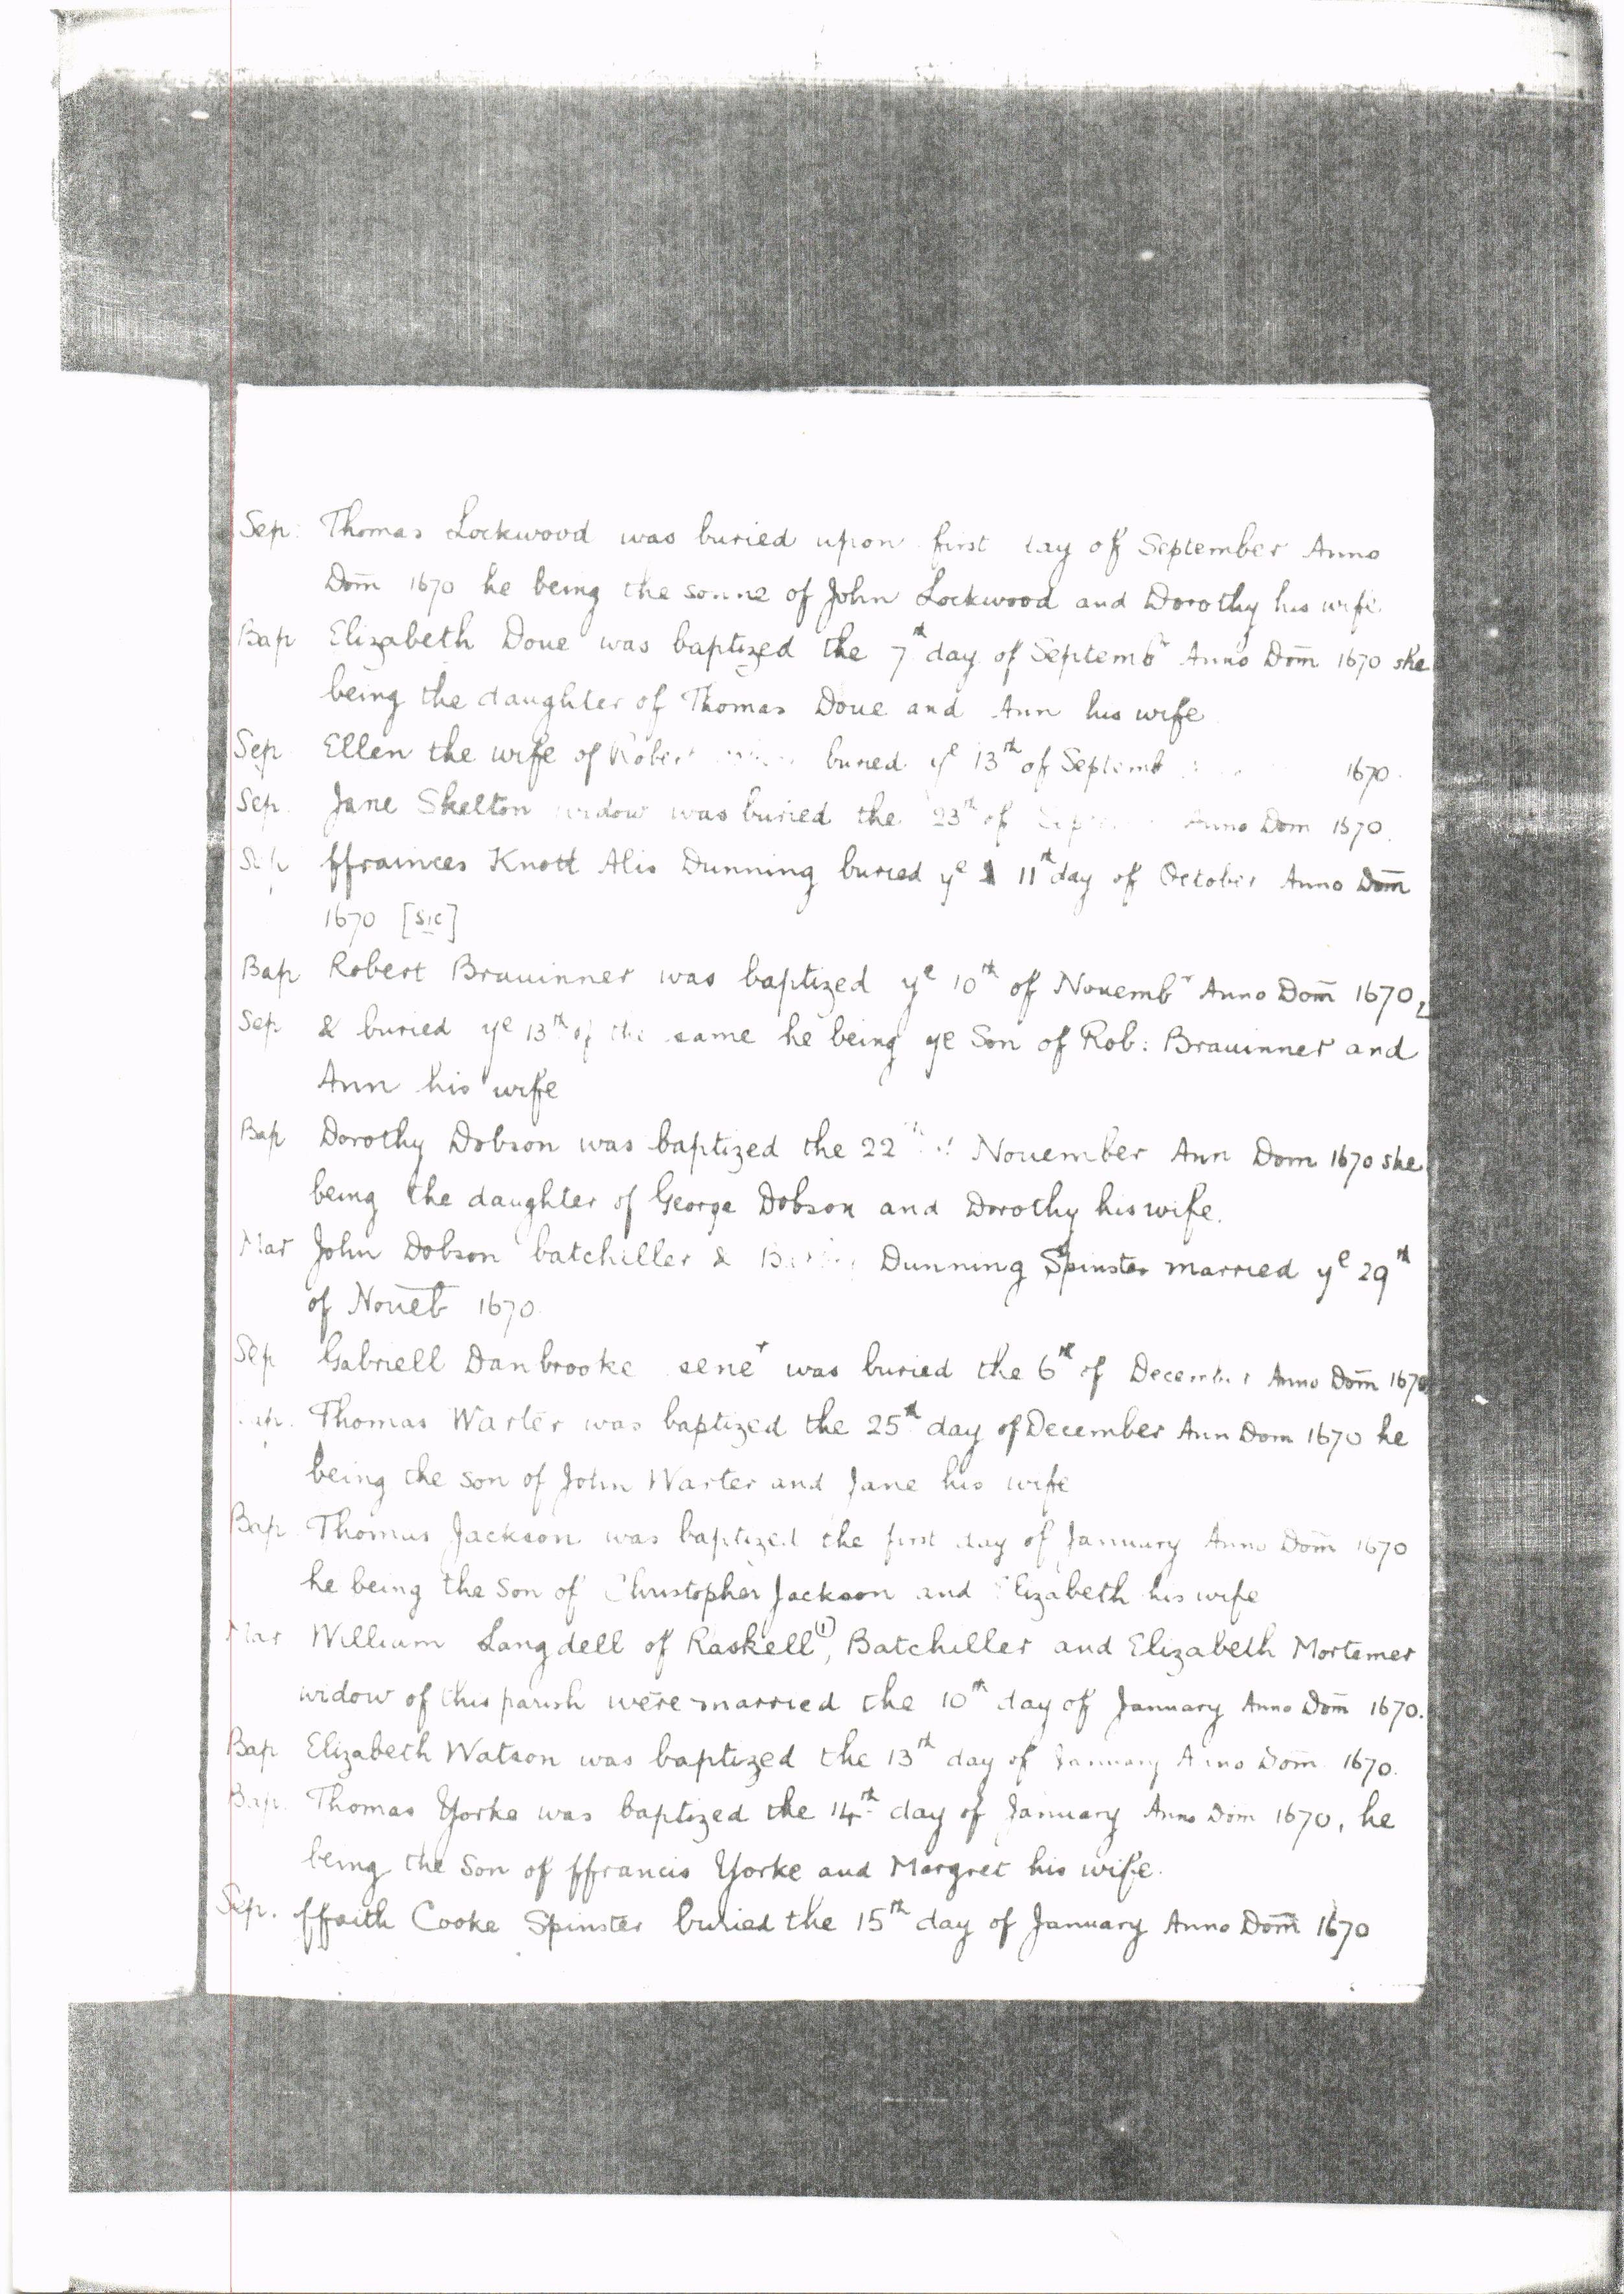 Sep: Thomas Lockwood was buried upon first day of September Anno
Dom̄ 1670 he being the sonne of John Lockwood and Dorothy his wife.
Bap Elizabeth Doue was baptized the 7th day of Septembr Anno Dom̄ 1670 she
being the daughter of Thomas Doue and Ann his wife
Sep Ellen the wife of Robert buried ye 13th of Septemb 1670.
Sep. Jane Skelton widow was buried the 23th of Sep Anno Dom 1670.
Sep ffrainces Knott Alis Dunning buried ye 11th day of October Anno Dom̄
1670 [sic]
Bap Robert Brauinner was baptized ye 10th of Nouembr Anno Dom̄ 1670,
Sep & buried ye 13th of the same he being ye Son of Rob: Brauinner and
Ann his wife
Bap Dorothy Dobson was baptized the 22th of Nouember Ann Dom 1670 she
being the daughter of George Dobson and Dorothy his wife.
Mar John Dobson batchiller & Dunning Spinster married ye 29th
of Noueb̄ 1670.
Sep Gabriell Danbrooke sener was buried the 6th of December Anno Dom̄ 1670
Bap. Thomas Warter was baptized the 25th day of December Ann Dom 1670 he
being the son of John Warter and Jane his wife
Bap. Thomas Jackson was baptized the first day of January Anno Dom̄ 1670
he being the Son of Christopher Jackson and Elizabeth his wife
Mar William Langdell of Raskell(1), Batchiller and Elizabeth Mortemer
widow of this parish were married the 10th day of January Anno Dom̄ 1670.
Bap Elizabeth Watson was baptized the 13th day of January Anno Dom̄ 1670.
Bap. Thomas Yorke was baptized the 14th day of January Anno Dom̄ 1670, he
being the Son of ffrancis Yorke and Margret his wife.
Sep. ffaith Cooke Spinster buried the 15th day of January Anno Dom̄ 1670